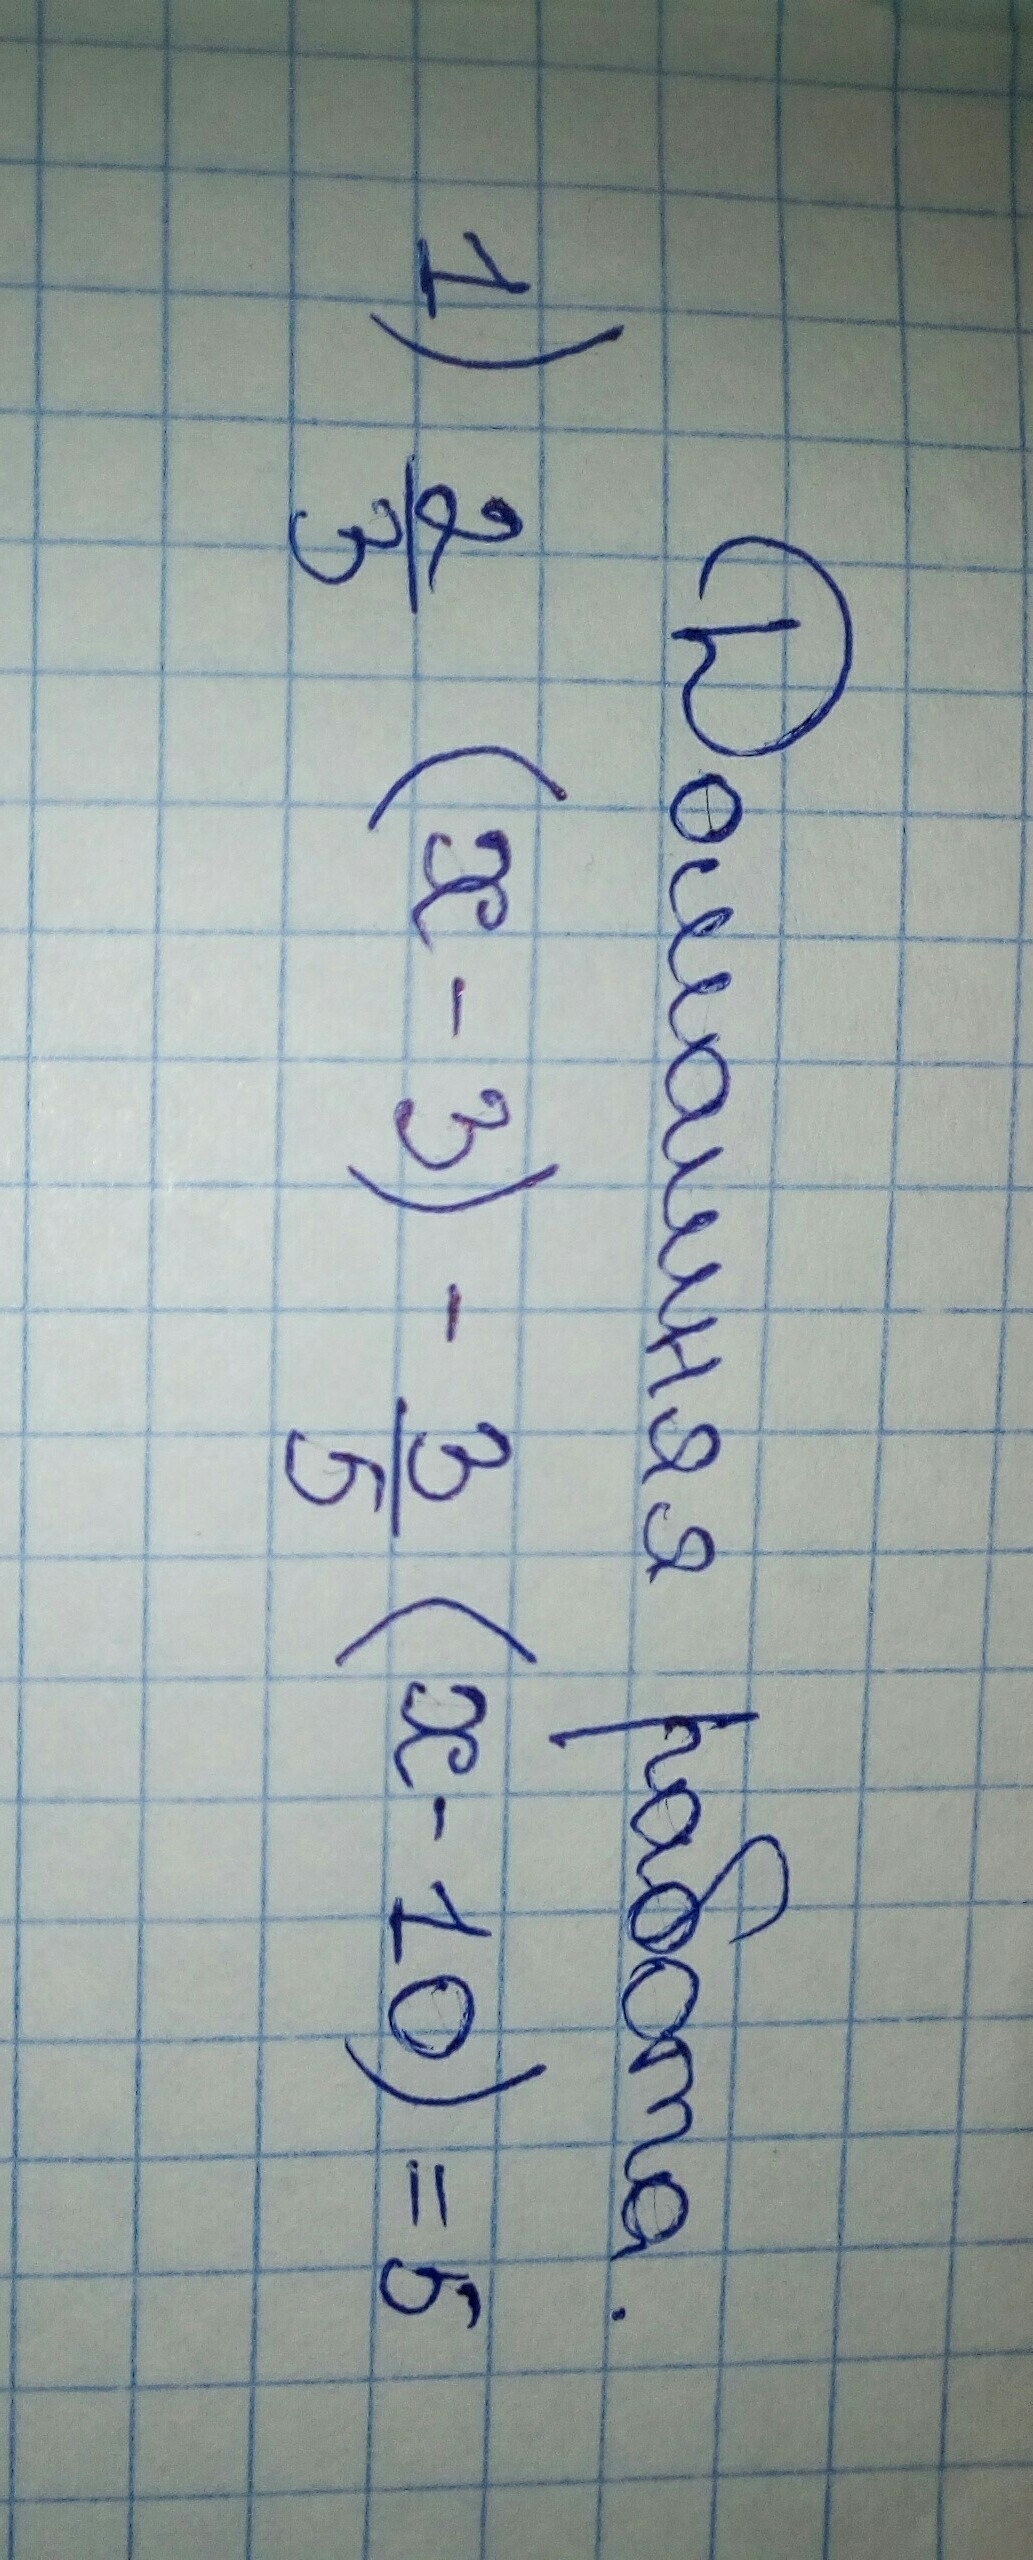 Домашняя работа.
1) 2/3 (x - 3) - 3/5 (x - 10) = 5